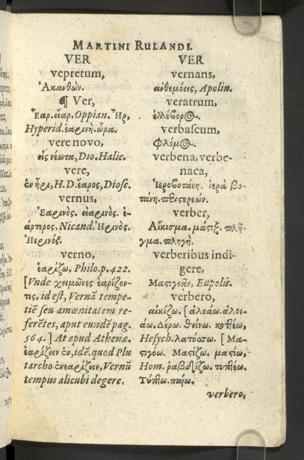 MARTINI RULANDI.
VER
vepretum,
Ἀκανθών.
¶ Ver,
Ἔαρ. εἶαρ. Oppian. Ἦρ,
Hyperid. ἐαρινὴ ὥρα.
vere novo,
εἰς νέωτα, Dio. Halic.
vere,
ἐν ἦρι, H. D. ἔαρος, Diosc.
vernus,
Ἐαρινὸς. εἰαρινὸς. ἐ-
άρτερος. Nicand. Ἠρινὸς.
Ἠερινὸς.
verno,
ἐαρίζω, Philo. p. 422.
[Vnde χειμῶνες ἐαρίζον-
τες, id est, Vernā tempe-
riē seu amœnitatem re-
ferētes, aput eundē pag.
564.] At apud Athenæ.
ἐαρίζειν ἐν, idē. quod Plu
tarcho ἐνεαρίζειν, Vernū
tempus alicubi degere.
VER
vernans,
ἀνθεμόεις, Apollin.
veratrum,
ἑλλέβορος.
verbascum,
Φλόμος.
verbena, verbe-
naca,
Ἱεροβοτάνη. ἱερὰ βο-
τάνη. περιστερεών.
verber,
Αἴκισμα. μάστιξ. πλῆ-
γμα. πληγή.
verberibus indi-
gere,
Μαστιγιᾶν, Eupolis.
verbero,
αἰκίζω. [ἀλοάω. ἀλοι-
άω. Δέρω. θείνω. κοπέω,
Hesych. λατύσσω. [Μα-
στιγόω. Μαστίζω. μαστίω,
Hom. ῥαβδίζω. τυπέω.
Τύπτω. παίω.
verbero,